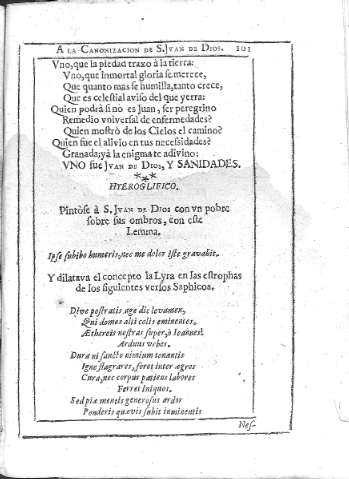 A LA CANONIZACION DE S. JVAN DE DIOS. 101
Vno, que la piedad traxo à la tierra:
Vno, que inmortal gloria se merece,
Que quanto mas se humilla, tanto crece,
Que es celestial aviso del que yerra:
Quien podrá si nò es Juan, ser peregrino
Remedio vniversal de enfermedades?
Quien mostrò de los Cielos el camino?
Quien fue el alivio en tus necessidades?
Granada; yà la enigma te adivino:
VNO fue JVAN DE DIOS, Y SANIDADES.
***
HYEROGLIFICO.
Pintòse à S. JVAN DE DIOS con vn pobre
sobre sus ombros, con este
Lemma.
Ipse subibo humeris, nec me dolor iste gravabit.
Y dilatava el concepto la Lyra en las estrophas
de los siguientes versos Saphicos.
Dive postratis age dic levamen,
Qui domos alti colis eminentes.
Æthereis nostras super, ò Ioannes!
Arduus vrbes.
Dura ni sancto nimium tonantis
Igne flagrares, foret inter ægros
Cura, nec corpus patiens labores
Ferret iniquos.
Sed piæ mentis generosus ardor
Ponderis quævis subit imminentis
Nes-